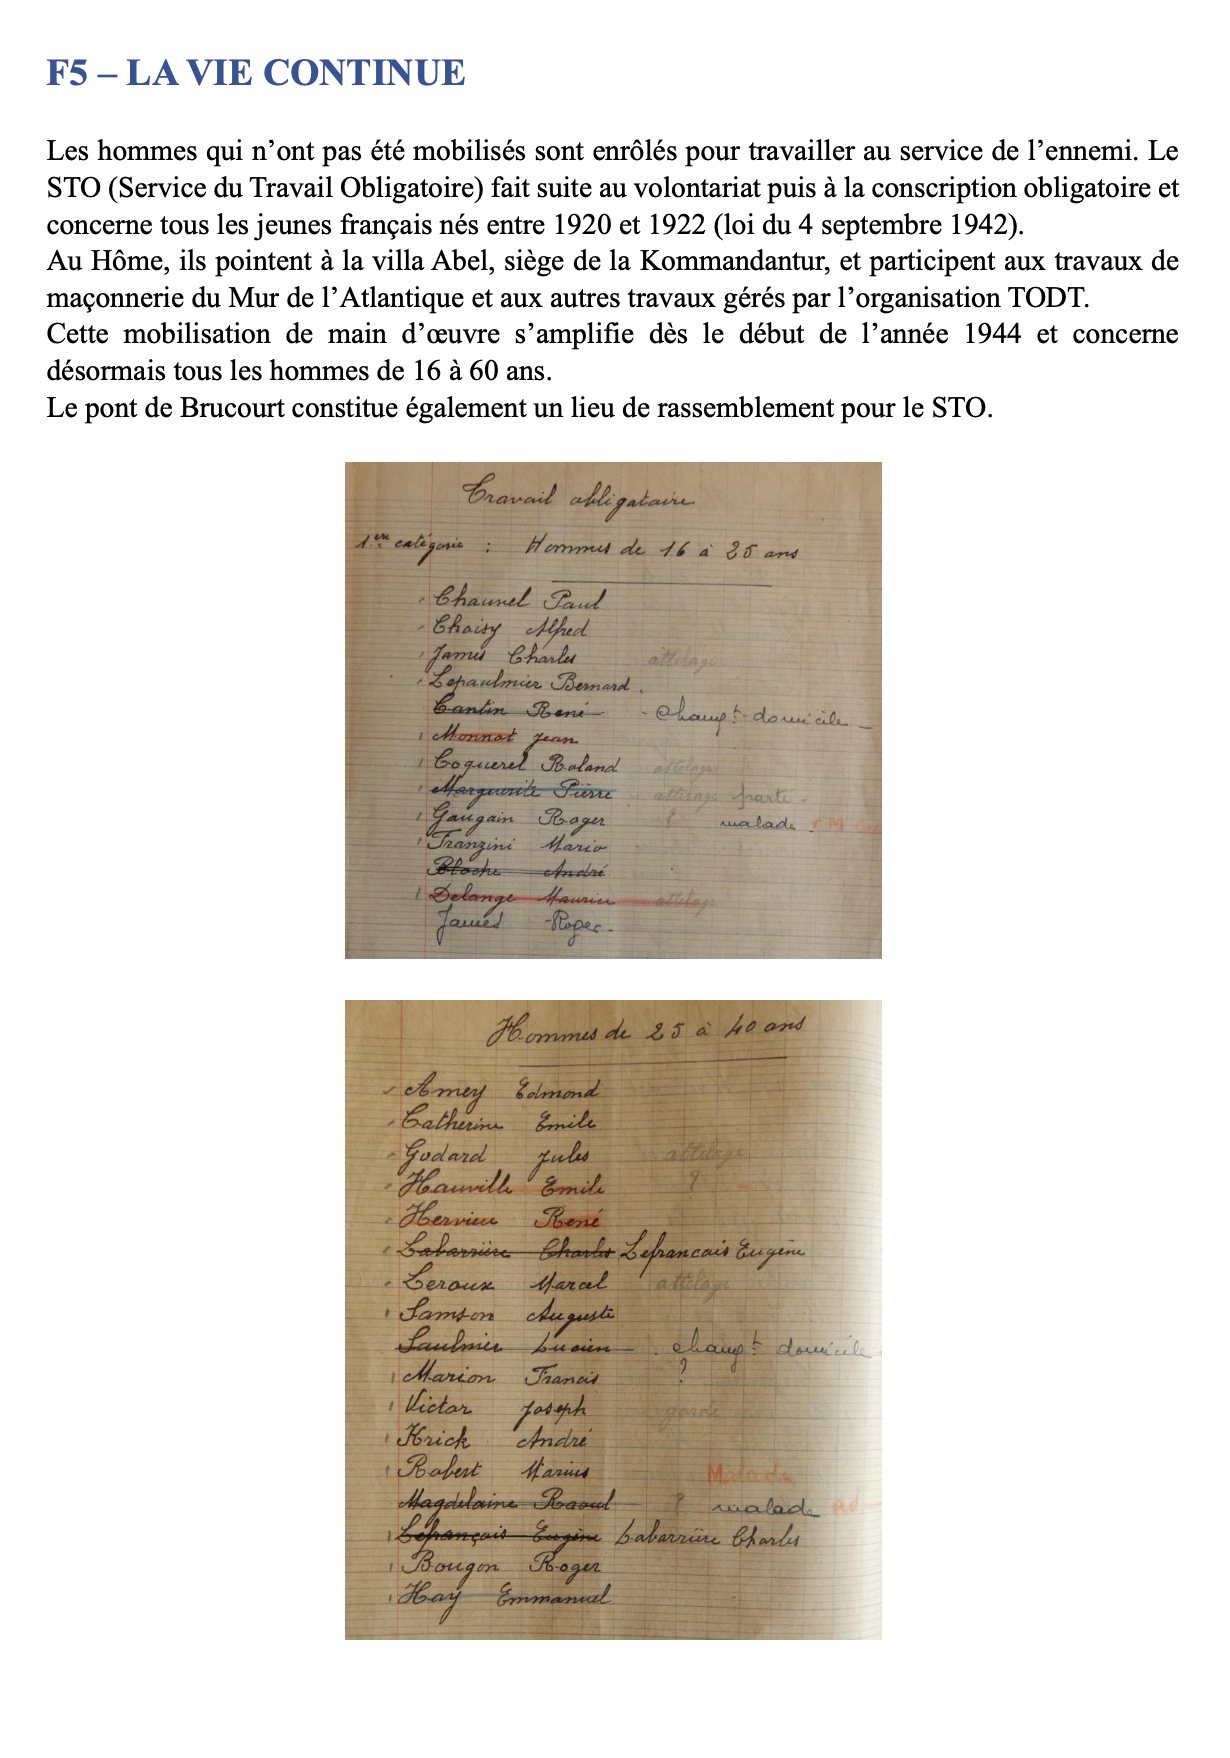 F5 – LA VIE CONTINUE
Les hommes qui n’ont pas été mobilisés sont enrôlés pour travailler au service de l’ennemi. Le
STO (Service du Travail Obligatoire) fait suite au volontariat puis à la conscription obligatoire et
concerne tous les jeunes français nés entre 1920 et 1922 (loi du 4 septembre 1942).
Au Hôme, ils pointent à la villa Abel, siège de la Kommandantur, et participent aux travaux de
maçonnerie du Mur de l’Atlantique et aux autres travaux gérés par l’organisation TODT.
Cette mobilisation de main d’œuvre s’amplifie dès le début de l’année 1944 et concerne
désormais tous les hommes de 16 à 60 ans.
Le pont de Brucourt constitue également un lieu de rassemblement pour le STO.
Travail obligatoire
1ère catégorie : Hommes de 16 à 25 ans
Chaunel Paul
Choisy Alfred
James Charles attelage
Lepaulmier Bernard
Cantin René - changt domicile
Monnot Jean
Coquerel Roland attelage
Marguerite Pierre attelage parti
Gaugain Roger ? malade
Franzini Mario
Bloche André
Delange Maurice attelage
James Roger
Hommes de 25 à 40 ans
Amey Edmond
Catherine Emile
Godard Jules attelage
Hauville Emile ?
Hervieu René
Labarrière Charles Lefrancais Eugène
Leroux Marcel attelage
Samson Auguste
Saulnier Lucien changt domicile
Marion Francis ?
Victor Joseph garde
Krick André
Robert Marius Malade
Magdelaine Raoul ? malade
Lefrançois Eugène Labarrière Charles
Bougon Roger
Hay Emmanuel